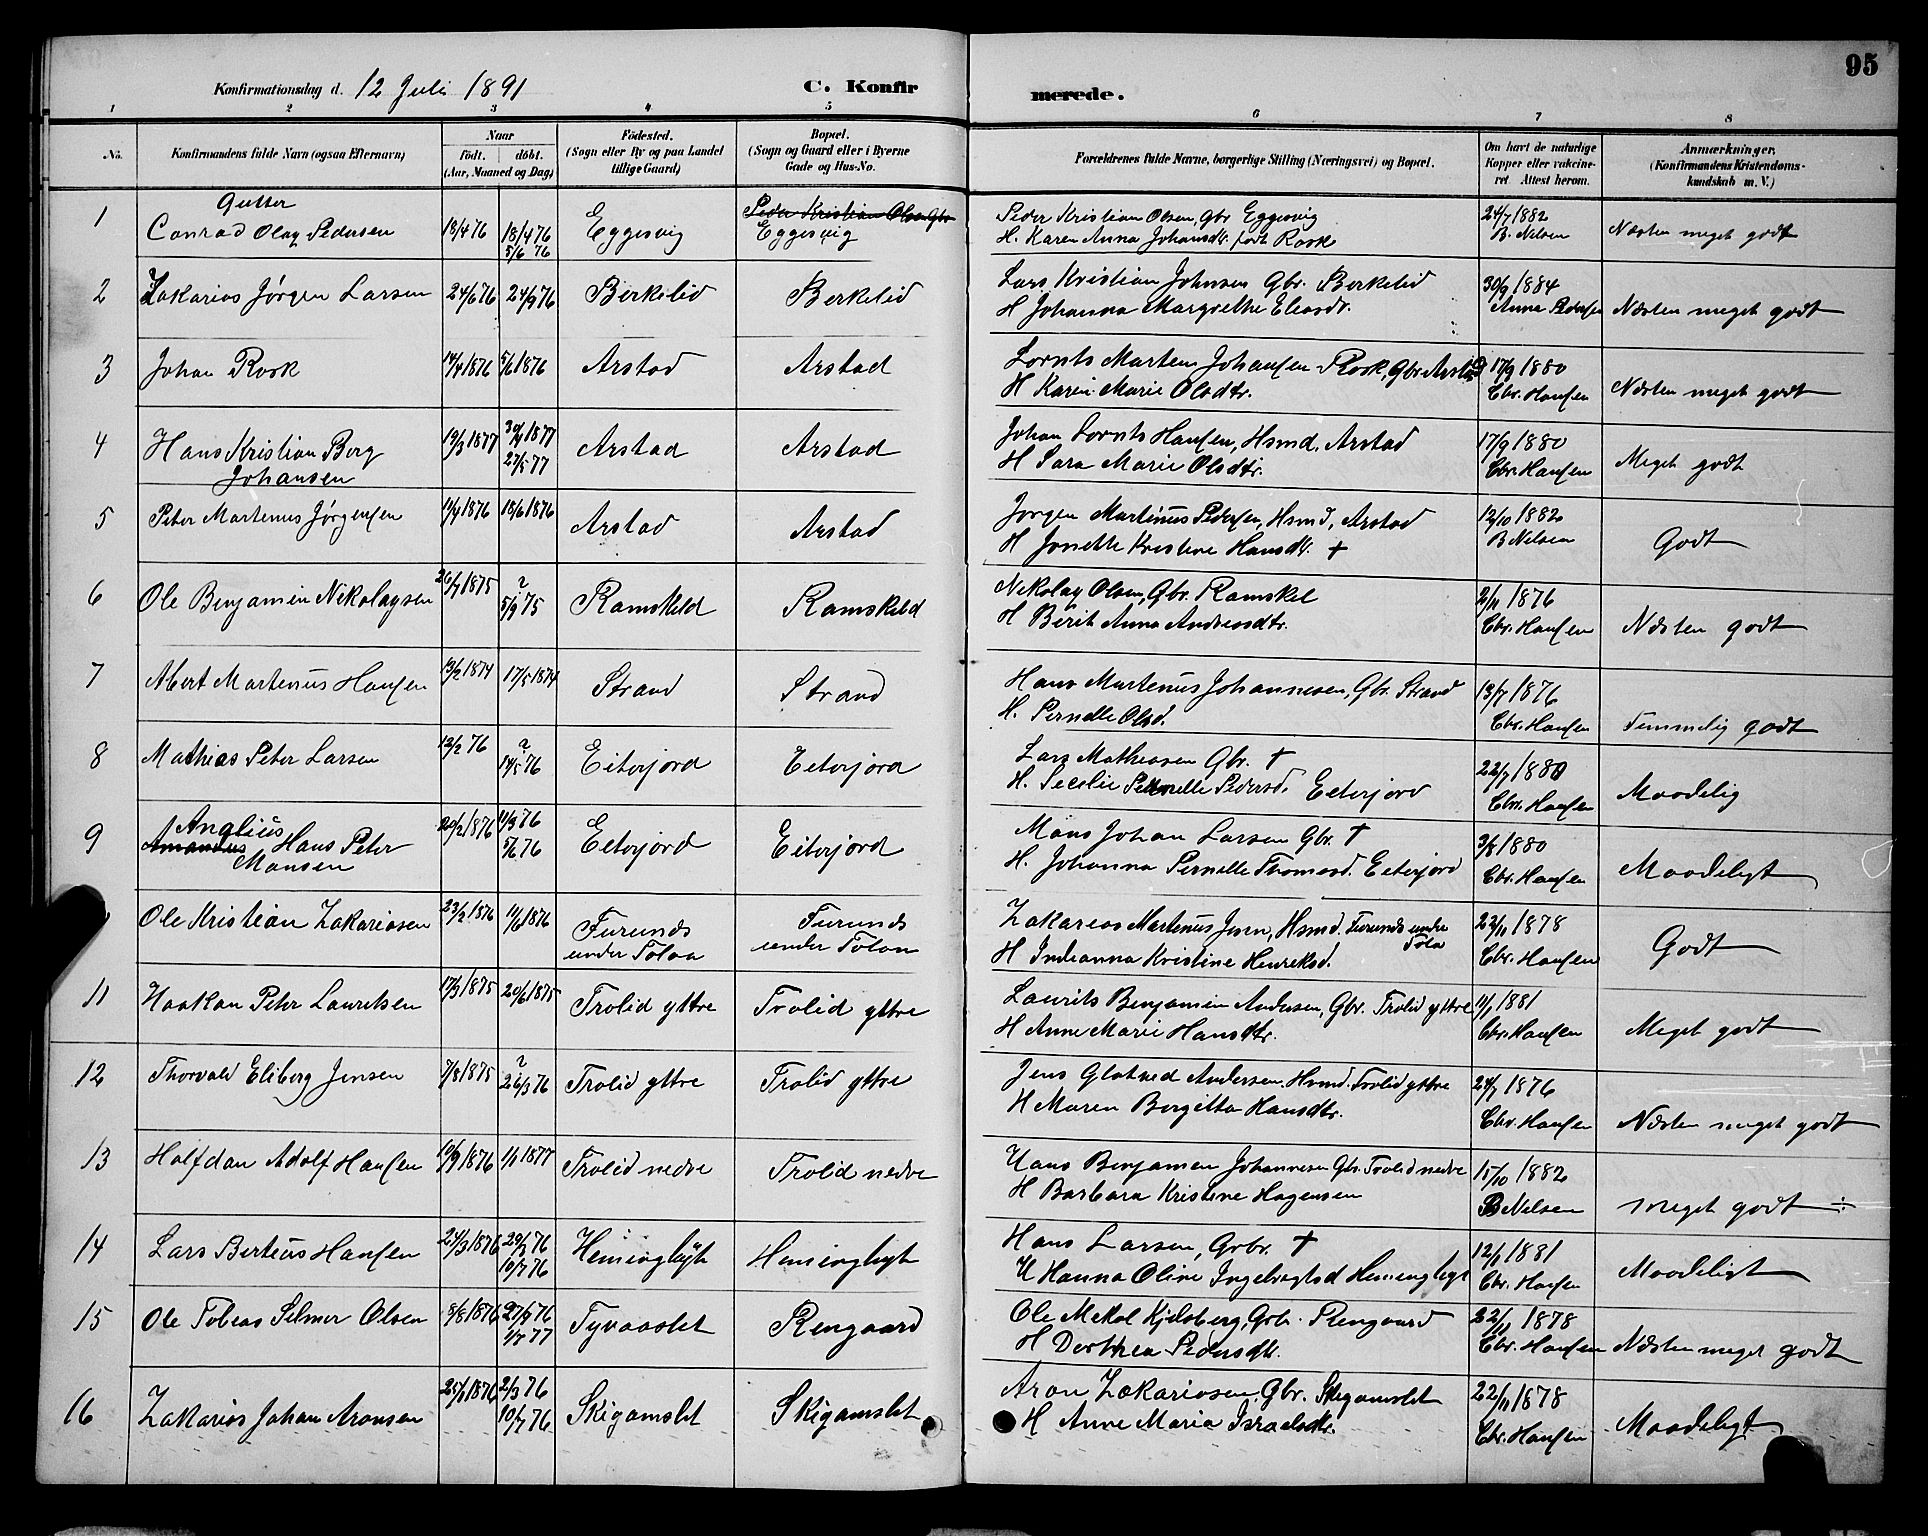 95
Konfirmationsdag d. 12 Juli 1891 C. Konfirmerede.
1 2 3 4 5 6 7 8
No. Konfirmandens fulde Navn (ogsaa Efternavn) Naar født. døbt. (Aar, Maaned og Dag) Födested. (Sogn eller By og paa Landet tillige Gaard) Bopæl. (Sogn og Gaard eller i Byerne Gade og Hus-No. Forældrenes fulde Navne, borgerlige Stilling (Næringsvei) og Bopæl. Om havt de naturlige Kopper eller vakcineret Attest herom. Anmærkninger, (Konfirmandens Kristendomskundskab m. V.)
Gutter
1 Conrad Olag Pedersen 18/4 76 18/4 76 5/6 76 Eggesvig Peder Kristian Olsen Gbr Eggesvig Peder Kristian Olsen, Gbr Eggesvig H. Karen Anna Johansdtr. født Rook 24/7 1882 B. Nilsen Næsten meget godt
2 Zakarias Jørgen Larsen 24/6 76 24/9 76 Birkelid Berkelid Lars Kristian Johnsen Gbr. Berkelid H Johanna Margrethe Eliasdr. 30/9 1884 Anna Pedersen Næsten meget godt
3 Johan Rook 14/4 1876 5/6 1876 Arstad Arstad Lornts Marten Johansen Rook, Gbr Arstad H Karen Marie Olsdtr. 17/9 1880 Chr. Hansen Næsten meget godt
4 Hans Kristian Borg Johansen 19/3 1877 30/4 1877 27/5 77 Arstad Arstad Johan Lornts Hansen, Hsmd. Arstad H Sara Marie Olsdtr. 17/9 1880 Chr. Hansen Meget godt
5 Peter Martenus Jørgensen 11/4 1876 18/6 1876 Arstad Arstad Jørgen Martinus Pedersen, Hsmd, Arstad H Jonette Kristine Hansdtr. † 12/10 1882 B Nilsen Godt
6 Ole Benjamin Nikolaysen 26/7 1875 ? 5/9 75 Ramskeld Ramskeld Nikolay Olsen, Gbr. Ramskel H Berit Anna Andreasdtr. 2/11 1876 Chr. Hansen Næsten godt
7 Albert Martenus Hansen 13/2 1874 17/5 1874 Strand Strand Hans Martenus Johannesen, Gbr. Strand H. Pernelle Olsd. 13/7 1876 Chr. Hansen Temmelig godt
8 Mathias Peter Larsen 12/2 76 ? 14/5 76 Eiterjord Eeterjord Lars Mathiasen Gbr. † H. Secelie Pernelle Pedersd. Eeterjord 22/7 1880 Chr. Hansen Maadelig
9 Anglius Amandus Hans Peter Mansen 20/2 1876 11/3 76 5/6 76 Eeterjord Eiterjord Mons Johan Larsen Gbr. † H. Johanna Pernelle Thomasd. Eeterjord 3/8 1880 Chr. Hansen Maadeligt
Ole Kristian Zakariasen 23/2 1876 11/6 1876 Furunds under Tolaa Furunds under Tolaa Zakarias Martenus Jensn, Hsmd. Furunds under Tolaa H Indianna Kristine Henreksd. 22/11 1878 Chr. Hansen Godt
11 Haakon Peter Lauretsen 17/3 1875 20/6 1875 Trolid yttre Trolid yttre Laurits Benjamin Andersen, Gbr. Trolid yttre H Anne Marie Hansdtr. 11/1 1881 Chr. Hansen Meget godt
12 Thorvald Eliberg Jensen 7/8 1875 ? 26/3 76 Trolid yttre Trolid yttre Jens Glatved Andersen. Hsmd. Trolid yttre H Maren Borgitta Hansdtr. 24/7 1876 Chr. Hansen Næsten meget godt
13 Halfdan Adolf Hansen 10/9 1876 1/1 1877 Trolid nedre Trolid nedre Hans Benjamen Johannesen Gbr. Trolid nedre H Barbara Kristine Hagensen 15/10 1882 B Nelsen meget godt ÷
14 Lars Berteus Hansen 24/3 1876 29/3 76 10/7 76 Heninghÿt Heninghyt Hans Larsen, Grbr. † H Hanna Oline Ingebregtsd Heninghyt 12/1 1881 Chr. Hansen Maadeligt
15 Ole Tobias Selmer Olsen 8/8 1876 27/9 76 1/7 77 Tyvaaslet Rengaard Ole Mekal Kjelsberg, Grbr. Rengaard H Dorthea Pedersdtr. 22/11 1878 Chr. Hansen Næsten meget godt
16 Zakarias Johan Aronsen 25/1 1876 2/3 76 10/7 76 Skigamslet Skigamslet Aron Zakariasen, Gbr. Skigamslet H Anne Maria Israelsdtr. 22/11 1878 Chr. Hansen Maadeligt